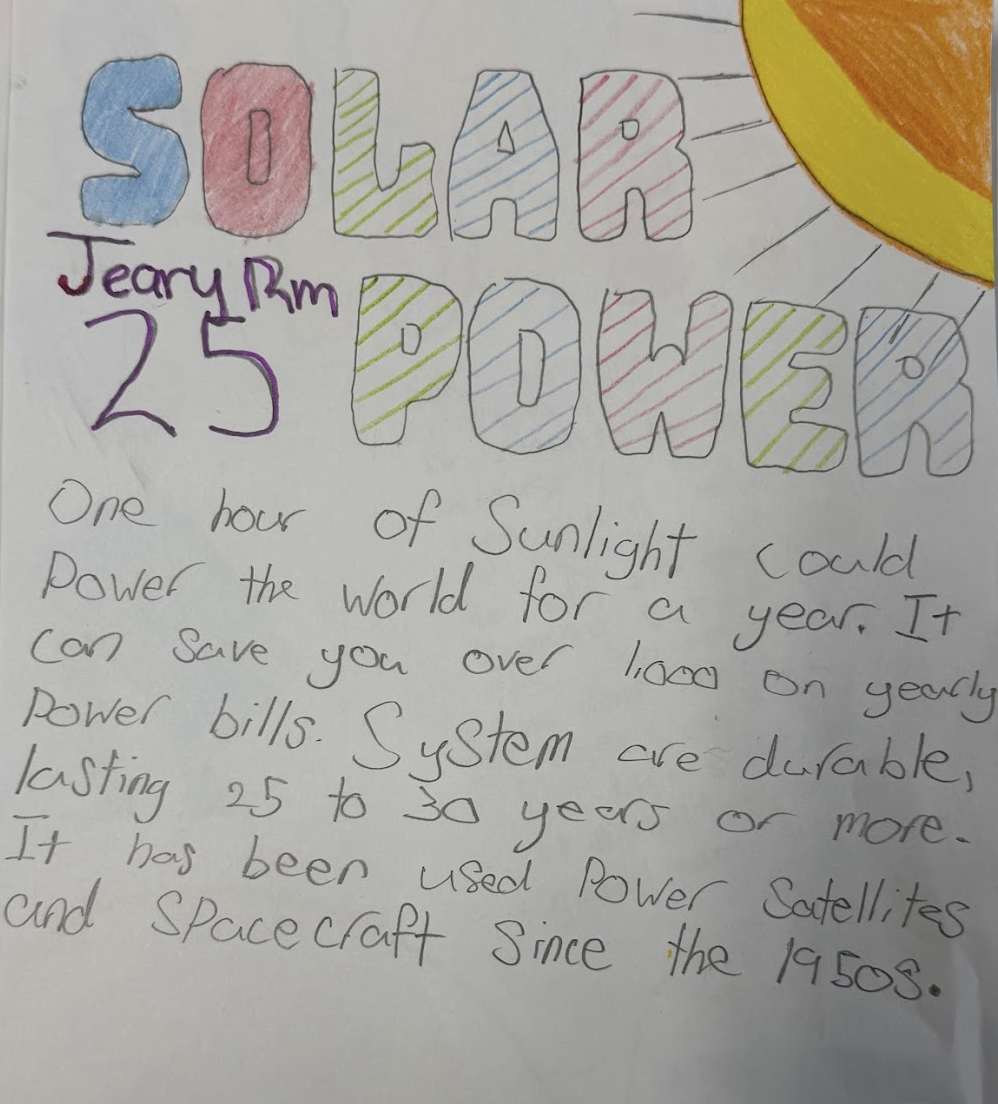 SOLAR
Jeary Rm
25
POWER
One hour of Sunlight could
Power the world for a year. It
can save you over 1,000 on yearly
Power bills. System are durable,
lasting 25 to 30 years or more.
It has been used Power Satellites
and Spacecraft Since the 1950s.